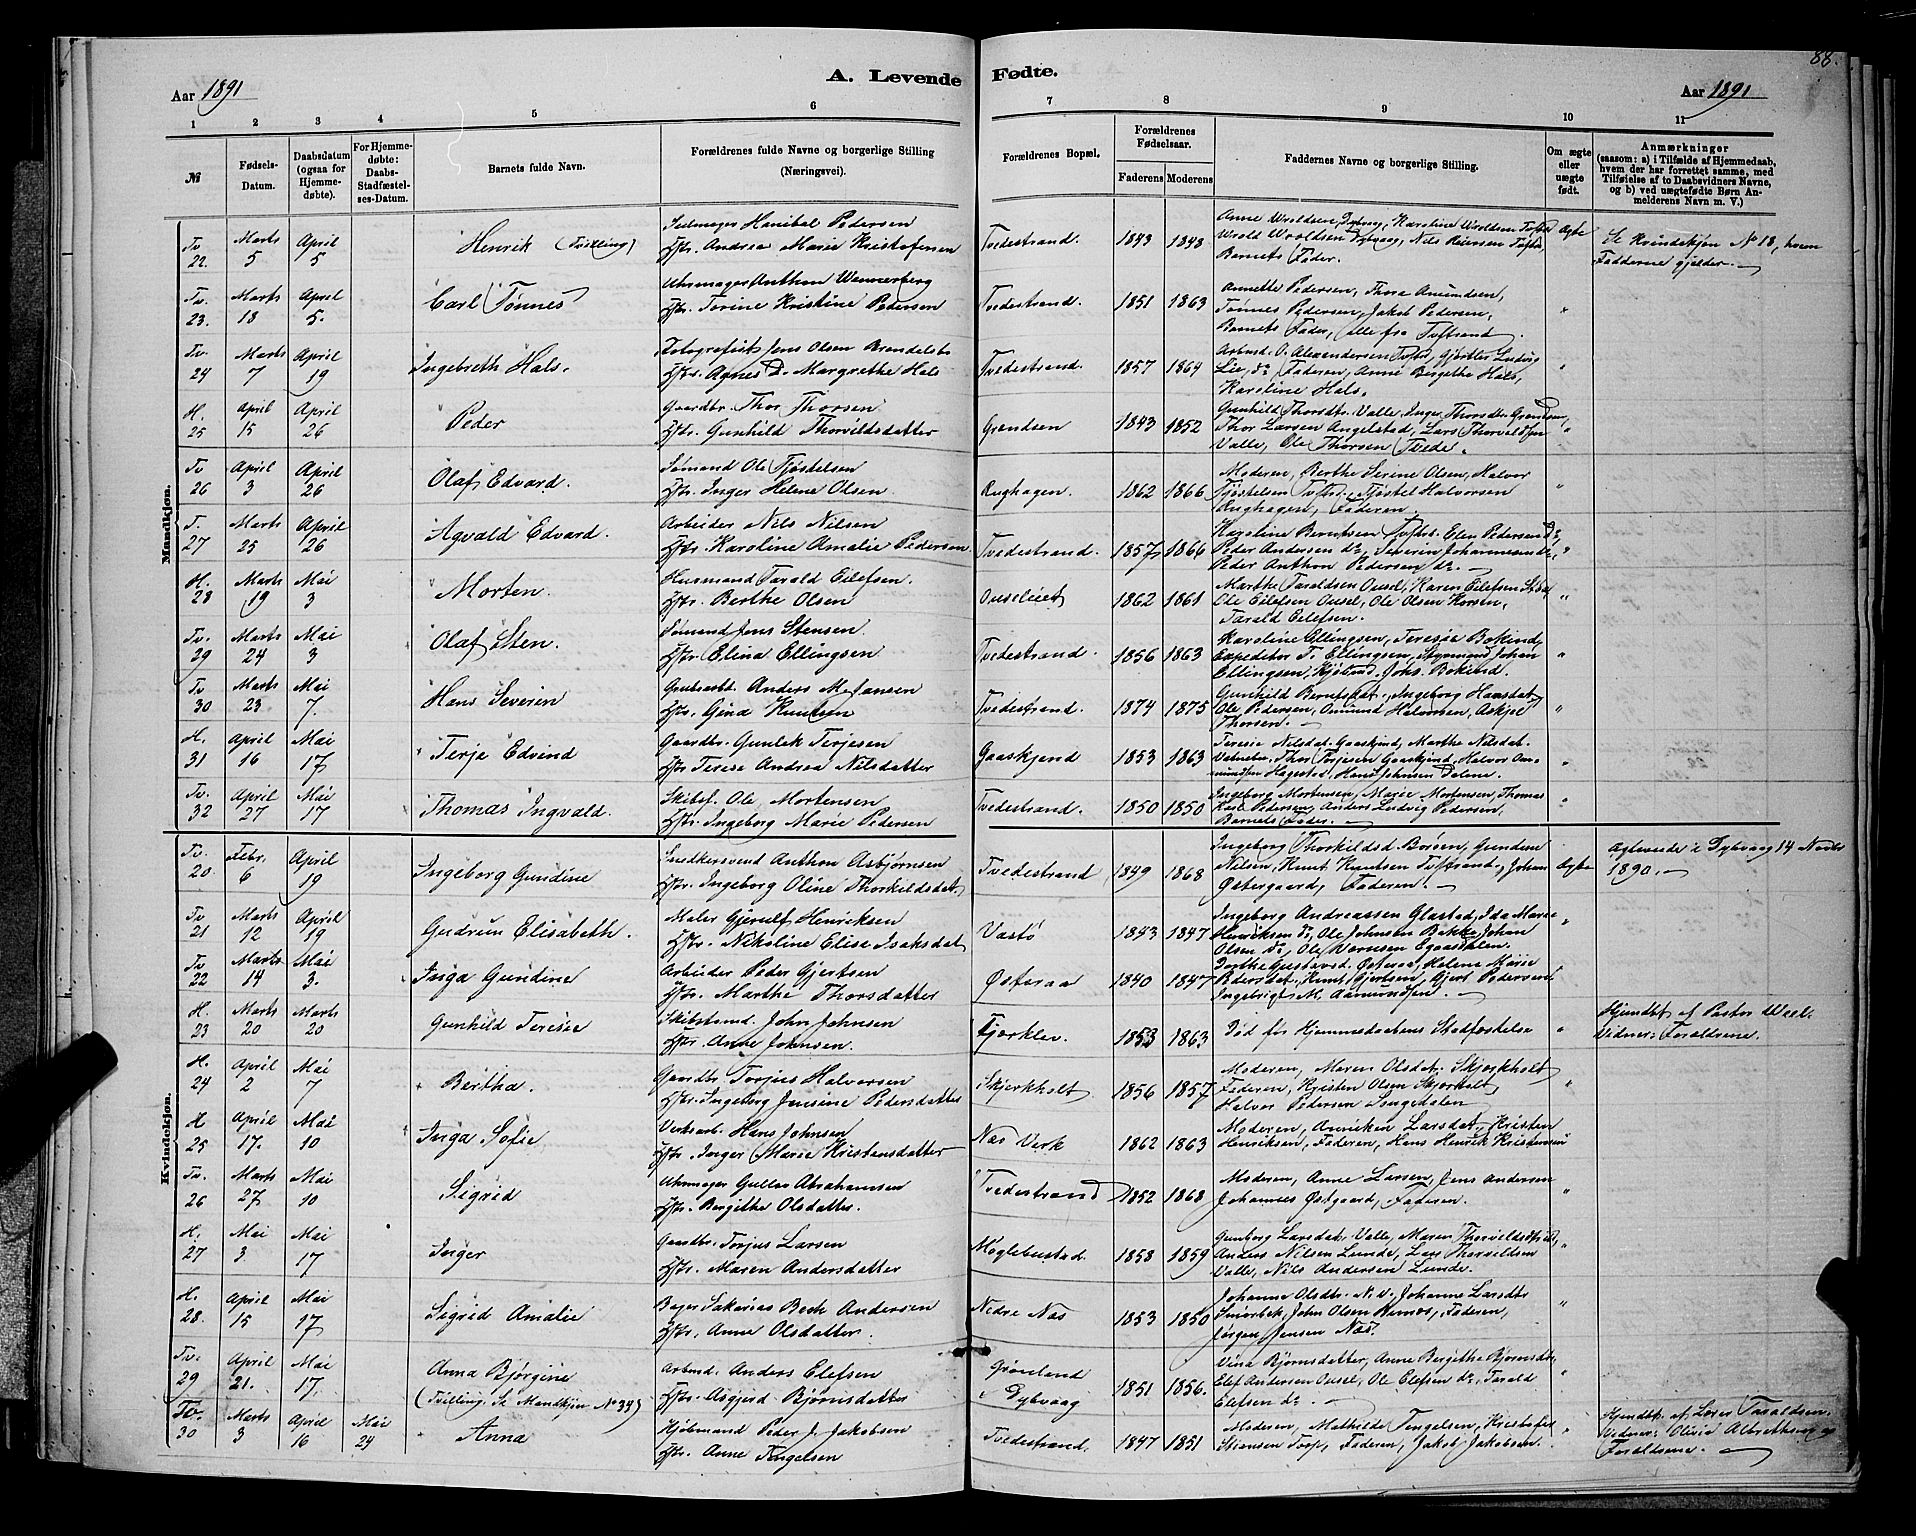 88.
A. Levende Fødte.
Aar 1891
Aar 1891
1 2 3 4 5 6 7 8 9 10 11
№
Fødsels-Datum.
Daabsdatum (ogsaa for Hjemme-døbte).
For Hjemme-døbte: Daabs-Stadfæstel-ses-Datum.
Barnets fulde Navn.
Forældrenes fulde Navne og borgerlige Stilling (Næringsvei).
Forældrenes Bopæl.
Forældrenes Fødselsaar.
Faderens Moderens
Faddernes Navne og borgerlige Stilling.
Om ægte eller uægte født.
Anmærkninger
(saasom: a) i Tilfælde af Hjemmedaab, hvem der har forrettet samme, med Tilføielse af to Daabsvidners Navne, og b) ved uægtefødte Børn An-melderens Navn m. V.)
Mandkjøn.
Tv 22. Marts 5 April 5 Henrik (Tvilling)
Seilmager Hanibal Pedersen
Hstr. Andrea Marie Kristofersen
Tvedestrand. 1843 1843
Barnets Fader.
Ægte
Se Kvindekjøn No 18, hvem
Fadderne gjelder.
Tv. 23. Marts 18 April 5. Carl Tønnes
Uhrmager Anthon Wennerberg
Hstr. Torine Kristine Pedersen
Tvedestrand. 1851 1863
Annette Pedersen, Thora Amundsen,
Tønnes Pedersen, Jakob Pedersen,
Barnets Fader, alle fra Tvstrand. "
Tv 24 Marts 7 April 19 Ingebreth Hals.
Fotografisk Jens Olsen
Hstr. Agnes D. Margrethe Hals
Tvedestrand. 1857 1864
Lie, do, Faderen, Anne Bergithe Hals,
Karoline Hals. "
H. 25 April 15 April 26 Peder
Gaardbr. Thor Thorsen
Hstr. Gunhild Thorvildsdatter
Grendsen 1843 1852
Gunhild Thorsdtr. Valle, Inger Thorsdtr. Grendsen,
Thor Larsen Angelstad, Lars Thorvaldsen
Valle, Ole Thorsen Tvede. "
Tv 26 April 3 April 26 Olaf Edvard.
Sømand Ole Tjøstelsen
Hstr. Inger Helene Olsen
Rughagen. 1862 1866
Moderen, Berthe Serine Olsen, Halvor
Tjøstelsen Tvstr., Tjøstel Halvorsen
Rughagen, Faderen. "
T. 27 Marts 25 April 26 Agvald Edvard.
Arbeider Nils Nilsen
Hstr. Karoline Amalie Pedersen
Tvedestrand. 1857 1866
Karoline Berntsen Tvstr. Elen Pedersen Do,
Peder Andersen do, Severin Johannesen do,
Peder Anthon Pedersen do. "
H. 28 Marts 19 Mai 3 Morten.
Husmand Tarald Eilefsen.
Hstr. Berthe Olsen
Ouseleiet 1862 1861
Marthe Taraldsen Ousel, Karen Eilefsen
Ole Eilefsen Ousel, Ole Olsen
Tarald Eilefsen. "
Tv. 29 Marts 24 Mai 3 Olaf Sten.
Sømand Jens Stensen
Hstr. Elina Ellingsen
Tvedestrand. 1856 1863
Karoline Ellingsen, Teresia Bokind,
Expeditør T. Ellingsen, Styrmand Johan
Ellingsen, Johs. Bokind. "
Tv 30 Marts 23 Mai 7. Hans Severin
Grubearb. Anders M. Jansen
Hstr. Gina Knutsen
Tvedestrand. 1874 1875
Ole Pedersen, Amund Halvorsen,
Thorsen. "
H. 31 April 16 Mai 17 Terje Edvind
Gaardbr. Gunlek Terjesen
Hstr Terese Andrea Nilsdatter
Gaaskjend 1853 1863
Teresie Nilsdat. Gaaskjend, Marthe Nilsdat.
Thor Torjesen Gaaskjend, Halvor Aa-
mundsen Hagestad, Hans Johnsen Dalene. "
Tv. 32 April 27 Mai 17 Thomas Ingvald.
Skibsf. Ole Mortensen
Hstr. Ingeborg Marie Pedersen
Tvedestrand. 1850 1850
Ingeborg Mortensen, Marie Mortensen, Thomas
Karl Pedersen, Anders Ludvig Pedersen,
Barnets Fader. "
Kvindekjøn.
Tv. 20 Febr. 6 April 19 Ingeborg Gundine
Snedkersvend Anthon Asbjørnsen
Hstr. Ingeborg Oline Thorkildsdat.
Tvedestrand 1849 1868
Ingeborg Thorkildsd. Boreen, Gunder
Nilsen, Knut Knutsen Tvstrand, Johan
Østergaard, Faderen.
Ægte
Ægteviede i Dybvaag 14 Novbr
1890.
Tv 21 Marts 12 April 19 Gudrun Elisabeth.
Maler Gjerulf Henriksen
Hstr. Nikoline Elise Isaksdat
Vastø 1843 1847
Ingeborg Andreassen Glastad, Ida Marie
Henriksen do, Ole Johnsen Bakke, Johan
Olsen do, Ole "
Tv 22 Marts 14 Mai 3. Inga Gundine
Arbeider Peder Gjertsen
Hstr. Marthe Thorsdatter
Østeraa 1840 1847
Dorthe Gustavsd. Østeraa, Helene Marie
Pedersdat., Knut Gjertsen, Gjert Pedersen,
Ingebrigt M. Aamundsen. "
H. 23 Marts 20 Marts 20 Gunhild Terese
Skibstømd. John Johnsen
Hstr. Anne Johnsen.
Fjorklev. 1853 1863
Død før Hjemmedaabens Stadfæstelse "
Hjemdbt af Pastor
Vidner: Forældrene.
H. 24 April 2 Mai 7 Bertha.
Gaardbr Torjus Halvorsen
Hstr. Ingeborg Jensine Pedersdatter
Skjerkholt 1856 1857
Moderen, Maren Olsdat. Skjerkholt
Faderen, Kristen Olsen Skjerkholt,
Halvor Pedersen Songedalen "
H 25 April 17. Mai 10 Inga Sofie
Verksarb. Hans Johnsen
Hstr. Inger Marie Kristensdatter
Nas Verk 1862 1863
Moderen, Anniken Larsdat., Kristen
Henriksen, Faderen, Hans Henrik Kristensen "
Tv. 26 Marts 27 Mai 10 Sigrid
Uhrmager Gullar Abrahamsen
Hstr. Bergithe Olsdatter.
Tvedestrand 1852 1868
Moderen, Anne Larsen, Jens Andersen
Johannes Østgaard, Faderen. "
H. 27 Mai 3 Mai 17 Inger
Gaardbr. Torjus Larsen
Hstr. Maren Andersdatter
Møglebustad 1858 1859
Gunborg Larsdat. Valle, Maren Thorvildsd.
Anders Nilsen Lunde, Lars Thorvildsen
Valle, Nils Andersen Lunde. "
H. 28. April 15 Mai 17 Sigrid Amalie
Bager Sakarias Bech Andersen
Hstr. Anne Olsdatter.
Nedre Nas 1853 1850
Johanne Olsdtr. N.V. Johanne Larsdtr
Smørbek, John Olsen Ramos, Faderen,
Jørgen Jensen Nas. "
Tv. 29 April 21. Mai 17. Anna Bjørgine
(Tvilling. Se Mandkjøn No 33)
Arbmd. Anders Elefsen
Hstr. Asgjerd Bjørnsdatter
Grønland
Dybvaag 1851 1856.
Vina Bjørnsdatter, Anne Bergithe Bjørnsdtr
Elef Andersen Ousel, Ole Elefsen do, Tarald
Elefsen do. "
Tv. 30 Marts 3 April 16 Mai 24 Anna
Kjøbmand Peder J. Jakobsen
Hstr. Anne Tengelsen
Tvedestrand. 1847 1851
Moderen, Mathilde Tengelsen, Kristofer
Stiansen Torp, Faderen, Jakob Jakobsen. "
Hjemdbt. af Lærer Taraldsen.
Vidner: Olivia Albrethsen og
Forældrene.